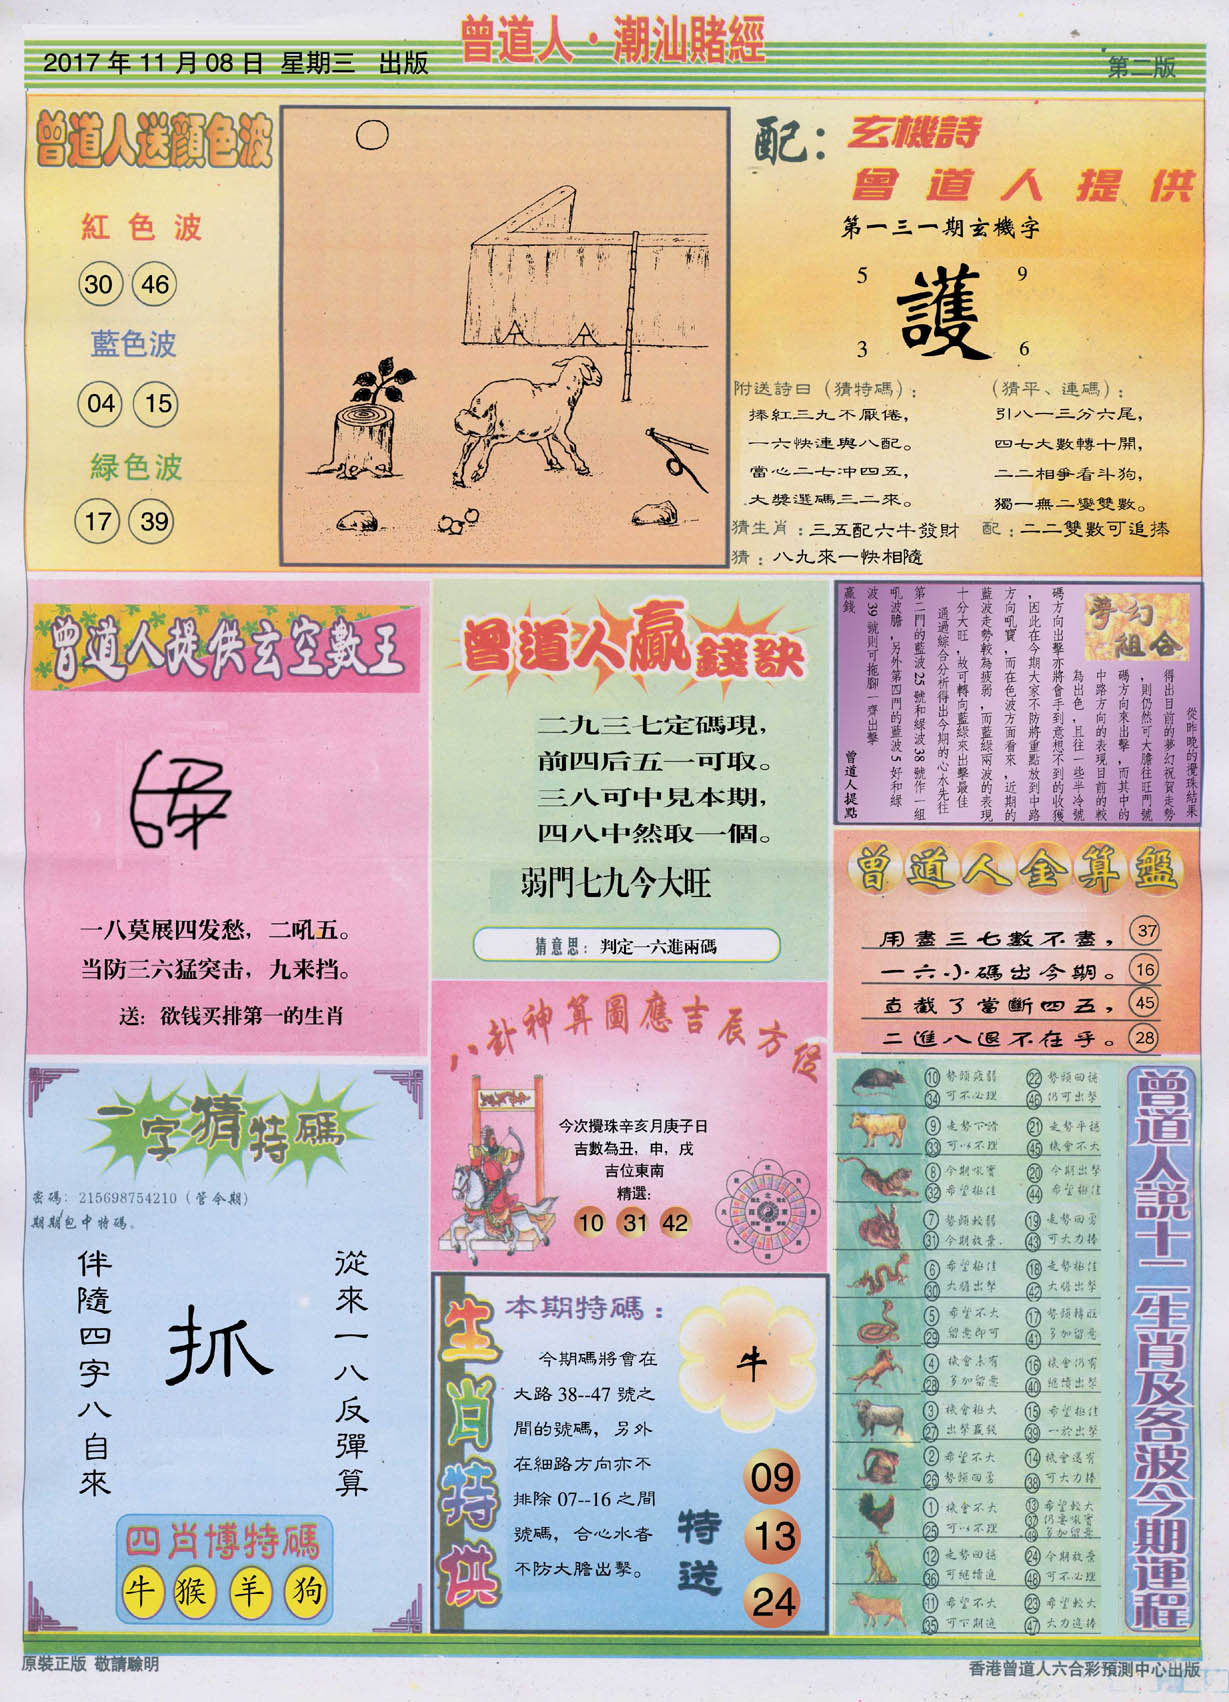 曾道人·潮汕賭經
2017年11月08日 星期三 出版
第二版
曾道人送顏色波
紅色波
30 46
藍色波
04 15
綠色波
17 39
配：玄機詩
曾道人提供
第一三一期玄機字
5 9
護
3 6
附送詩曰（猜特碼）：
捧紅三九不厭倦，
一六快連與八配。
當心二七沖四五，
大獎選碼三二來。
（猜平、連碼）：
引八一三分六尾，
四七大數轉十開，
二二相爭看斗狗，
獨一無二變雙數。
猜生肖：三五配六牛發財
配：二二雙數可追捧
猜：八九來一快相隨
曾道人提供玄空數王
一八莫展四发愁，二吼五。
当防三六猛突击，九来挡。
送：欲钱买排第一的生肖
曾道人贏錢訣
二九三七定碼現，
前四后五一可取。
三八可中見本期，
四八中然取一個。
弱門七九今大旺
猜意思：判定一六進兩碼
夢幻組合
從昨晚的攪珠結果
得出目前的夢幻祝賀走勢
，則仍然可大膽往旺門號
碼方向來出擊，而其中的
中路方向的表現目前的較
為出色，且往一些半冷號
碼方向出擊亦將會手到意想不到的收獲
，因此在今期大家不防將重點放到中路
方向吼寶，而在色波方面看來，近期的
藍波走勢較為疲弱，而藍綠兩波的表現
十分大旺，故可轉向藍綠來出擊最佳
通過綜合分析得出今期的心水先往
第二門的藍波25號和綠波38號作一組
吼波膽，另外第四門的藍波5好和綠
波39號則可拖腳一齊出擊
贏錢
曾道人提點
曾道人金算盤
用盡三七數不盡， 37
一六小碼出今期。 16
直截了當斷四五， 45
二進八退不在乎。 28
八卦神算圖應吉辰方位
今次攪珠辛亥月庚子日
吉數為丑，申，戌
吉位東南
精選：
10 31 42
一字猜特碼
密碼：215698754210（管令期）
期期包中特碼。
從來一八反彈算
抓
伴隨四字八自來
四肖博特碼
牛 猴 羊 狗
生肖特供
本期特碼：
今期碼將會在
大路38--47號之
間的號碼，另外
在細路方向亦不
排除07--16之間
號碼，合心水者
不防大膽出擊。
牛
特送
09
13
24
曾道人說十二生肖及各波今期運程
10 勢頭疲弱 22 勢頭回穩
34 可不必理 46 仍可出擊
9 走勢下滑 21 走勢平穩
33 可以不理 45 機會不大
8 今期吼寶 20 今期出擊
32 希望極佳 44 希望極佳
7 勢頭較弱 19 走勢回勇
31 今期放棄. 43 可大力捧
6 希望極佳 18 走勢極佳
30 大膽出擊 42 大膽出擊
5 希望不大 17 勢頭轉旺
29 留意即可 41 多加留意
4 機會未有 16 機會仍有
28 多加留意 40 繼續出擊
3 機會極大 15 希望極佳
27 出擊贏錢 39 一於出擊
2 希望不大 14 機會還有
26 勢頭回勇 38 可大力捧
1 機會不大 13 希望較大
25 可以不理 37 仍要吼實
49 多加留意
12 走勢回穩 24 今期放棄
36 可繼續追 48 可不必理
11 希望不大 23 希望較大
35 可下期追 47 大力追捧
原裝正版 敬請驗明
香港曾道人六合彩預測中心出版